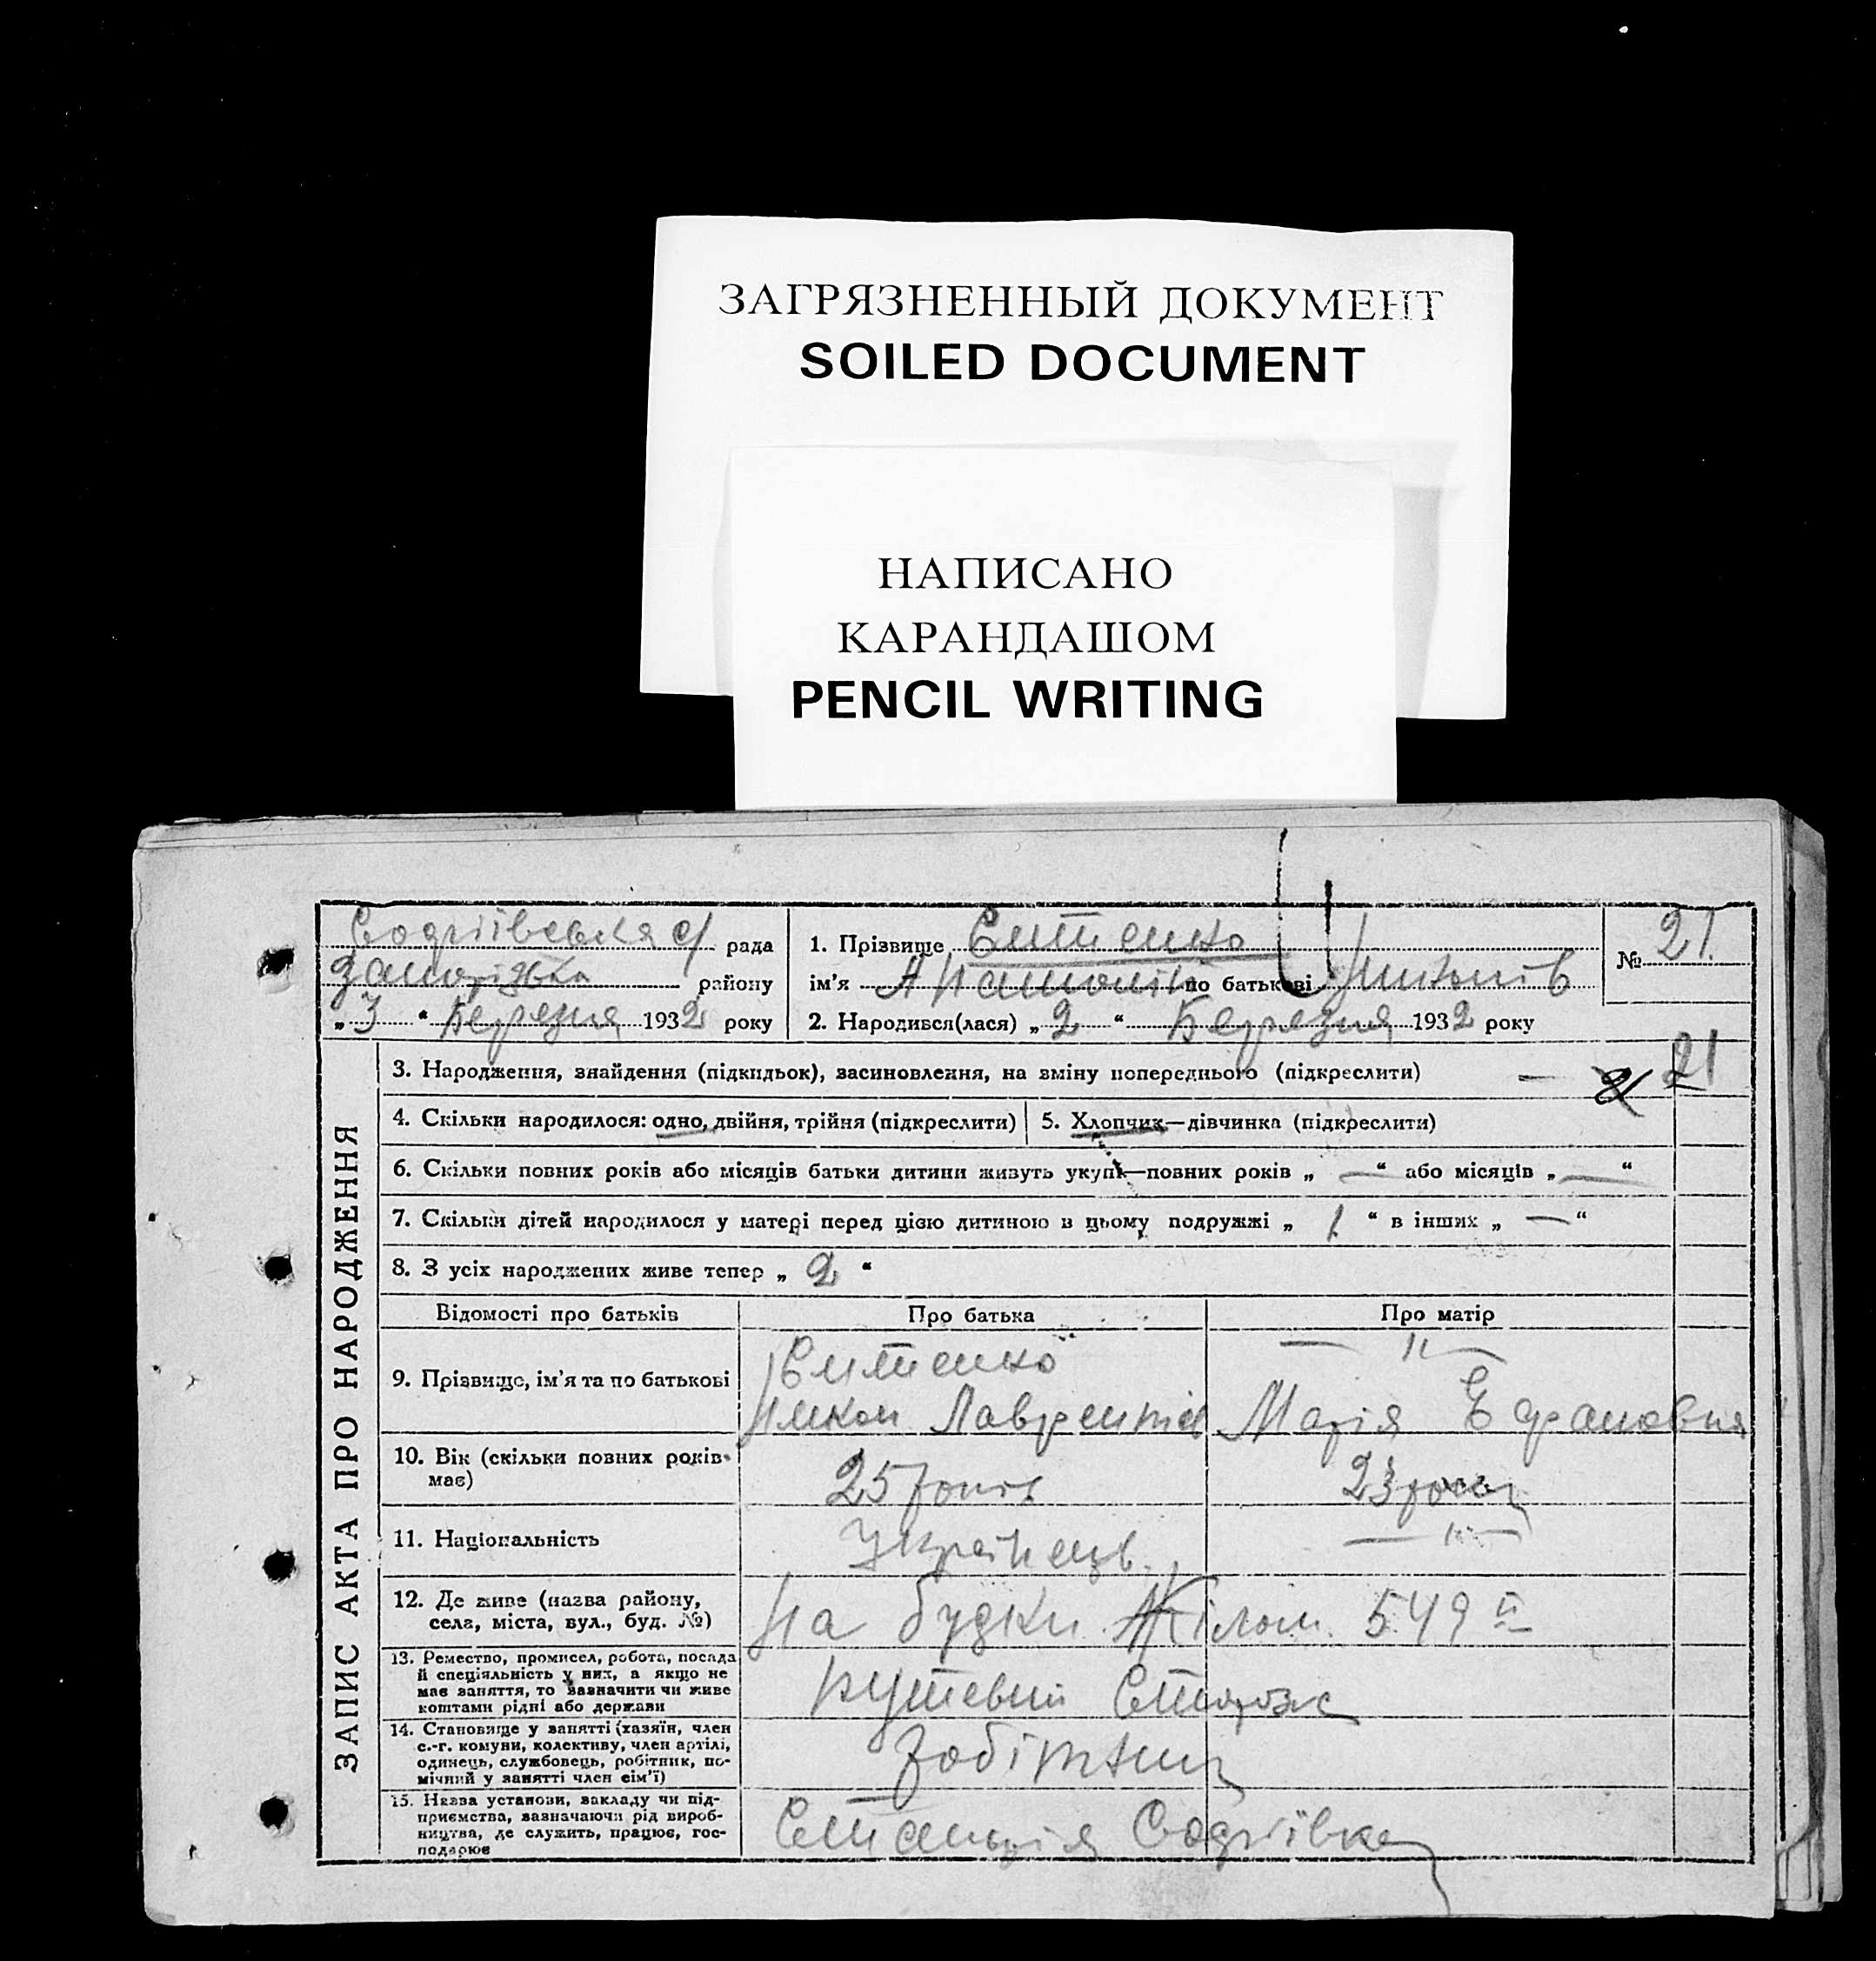 ЗАГРЯЗНЕННЫЙ ДОКУМЕНТ
SOILED DOCUMENT
НАПИСАНО
КАРАНДАШОМ
PENCIL WRITING
с/ рада
району
„ 3 “ Березня 1932 року
1. Прізвище
ім'я по батькові
2. Народився(лася) „ 2 “ Березня 1932 року
№ 21.
21
ЗАПИС АКТА ПРО НАРОДЖЕННЯ
3. Народження, знайдення (підкидьок), засиновлення, на зміну попереднього (підкреслити) —
4. Скільки народилося: одно, двійня, трійня (підкреслити)
5. Хлопчик—дівчинка (підкреслити)
6. Скільки повних років або місяців батьки дитини живуть укупі—повних років „ — “ або місяців „ — “
7. Скільки дітей народилося у матері перед цією дитиною в цьому подружжі „ 1 “ в інших „ — “
8. З усіх народжених живе тепер „ 2 “
Відомості про батьків
Про батька
Про матір
9. Прізвище, ім'я та по батькові
— " —
Марія
10. Вік (скільки повних років має)
25 років
23 роки
11. Національність
Українець
— " —
12. Де живе (назва району,
села, міста, вул., буд. №)
На будки 549
13. Ремество, промисел, робота, посада
й спеціяльність у них, а якщо не
має заняття, то зазначити чи живе
коштами рідні або держави
путевий Сторож
14. Становище у занятті (хазяїн, член
с.-г. комуни, колективу, член артілі,
одинець, службовець, робітник, по-
мічний у занятті член сім'ї)
робітник
15. Назва установи, закладу чи під-
приємства, зазначаючи рід вироб-
ництва, де служить, працює, гос-
подарює